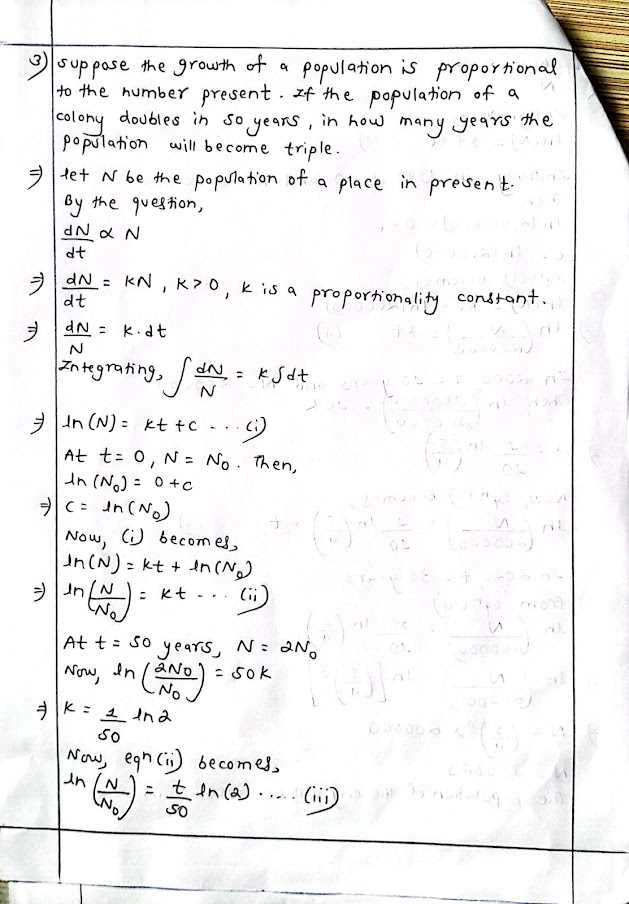 3) suppose the growth of a population is proportional
to the number present. If the population of a
colony doubles in 50 years, in how many years the
population will become triple.
⇒ let N be the population of a place in present.
By the question,
dN/dt ∝ N
⇒ dN/dt = KN, K>0, K is a proportionality constant.
⇒ dN/N = K.dt
Integrating, ∫ dN/N = K∫dt
⇒ ln(N) = Kt + c ... (i)
At t = 0, N = N₀. Then,
ln(N₀) = 0 + c
⇒ C = ln(N₀)
Now, (i) becomes,
ln(N) = kt + ln(N₀)
⇒ ln(N/N₀) = kt ... (ii)
At t = 50 years, N = 2N₀
Now, ln(2N₀/N₀) = 50K
⇒ K = 1/50 ln2
Now, eqn(ii) becomes,
ln(N/N₀) = t/50 ln(2) .... (iii)